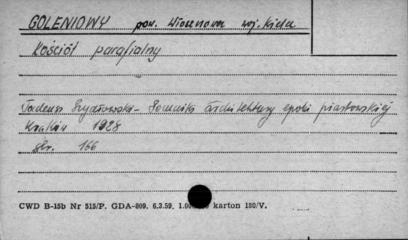 GOLENIOWY pow. Włoszczowa woj. Kielce
Kościół parafialny
Tadeusz Szydłowski - Pomniki architektury epoki piastowskiej
Kraków 1928
str. 166
CWD B-15b Nr 515/P. GDA-809. 6.3.59. karton 180/V.